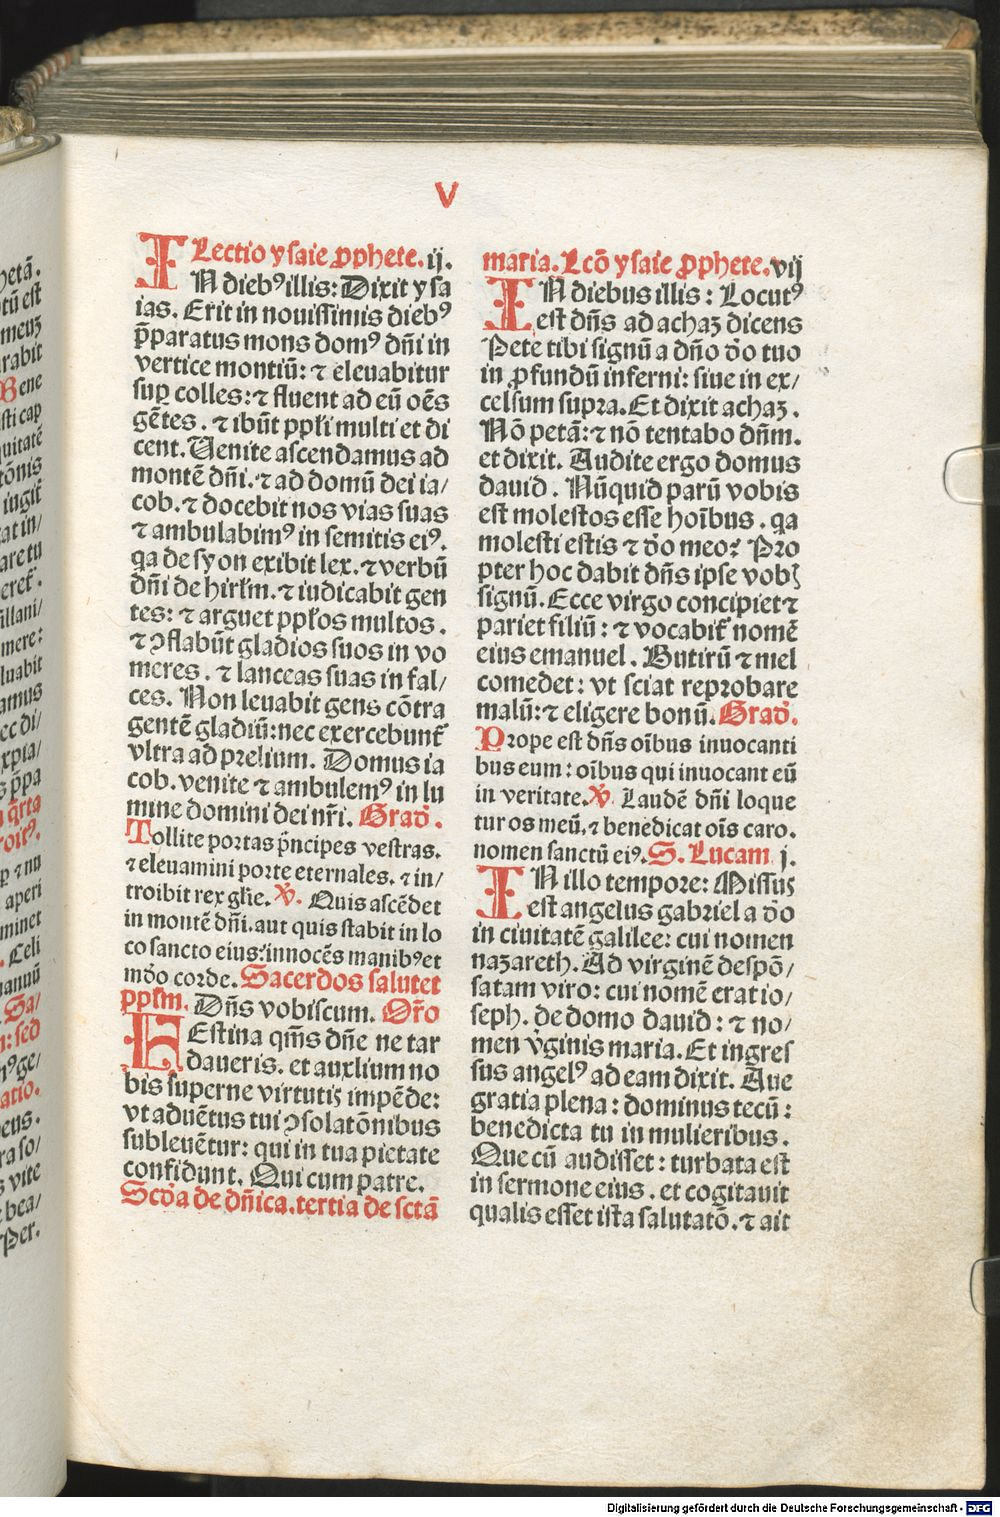 V
Lectio ysaie ꝓphete. ij.
IN diebꝰ illis: Dixit ysa
ias. Erit in nouissimis diebꝰ
p̄paratus mons domꝰ dn̄i in
vertice montiū: ⁊ eleuabitur
suꝑ colles: ⁊ fluent ad eū oēs
gētes. ⁊ ibūt ppl̄i multi et di
cent. Uenite ascendamus ad
montē dn̄i. ⁊ ad domū dei ia/
cob. ⁊ docebit nos vias suas
⁊ ambulabimꝰ in semitis eiꝰ.
qa de syon exibit lex. ⁊ verbū
dn̄i de hirl̄m. ⁊ iudicabit gen
tes: ⁊ arguet ppl̄os multos.
⁊ ꝯflabūt gladios suos in vo
meres. ⁊ lanceas suas in fal/
ces. Non leuabit gens cōtra
gentē gladiū: nec exercebunt᷑
vltra ad prelium. Domus ia
cob. venite ⁊ ambulemꝰ in lu
mine domini dei nr̄i. Grad̄.
Tollite portas p̄ncipes vestras.
⁊ eleuamini porte eternales. ⁊ in/
troibit rex gl̄ie. ℣. Quis ascēdet
in montē dn̄i. aut quis stabit in lo
co sancto eius: innocēs manibꝰ et
mūdo corde. Sacerdos salutet
ppl̄m. Dn̄s vobiscum. Or̄o
FEstina qm̄s dn̄e ne tar
daueris. et auxlium no
bis superne virtutꝭ impēde:
vt aduētus tui ꝯsolatōnibus
subleuētur: qui in tua pietate
confidunt. Qui cum patre.
Scd̄a de dn̄ica. tertia de sctā
maria. Lcō ysaie ꝓphete. vij
IN diebus illis: Locutꝰ
est dn̄s ad achaz dicens
Pete tibi signū a dn̄o d̄o tuo
in ꝓfundū inferni: siue in ex/
celsum supra. Et dixit achaz.
Nō petā: ⁊ nō tentabo dn̄m.
et dixit. Audite ergo domus
dauid. Nūquid parū vobis
est molestos esse hoībus. qa
molesti estis ⁊ d̄o meo? Pro
pter hoc dabit dn̄s ipse vobꝭ
signū. Ecce virgo concipiet ⁊
pariet filiū: ⁊ vocabit᷑ nomē
eius emanuel. Butirū ⁊ mel
comedet: vt sciat reprobare
malū: ⁊ eligere bonū. Grad̄.
Prope est dn̄s oībus inuocanti
bus eum: oībus qui inuocant eū
in veritate. ℣. Laudē dn̄i loque
tur os meū. ⁊ benedicat oīs caro.
nomen sanctū eiꝰ. S. Lucam j.
IN illo tempore: Missus
est angelus gabriel a d̄o
in ciuitatē galilee: cui nomen
nazareth. Ad virginē despō/
satam viro: cui nomē erat io/
seph. de domo dauid: ⁊ no/
men v̄ginis maria. Et ingres
sus angelꝰ ad eam dixit. Aue
gratia plena: dominus tecū:
benedicta tu in mulieribus.
Que cū audisset: turbata est
in sermone eius. et cogitauit
qualis esset ista salutatō. ⁊ ait
Digitalisierung gefördert durch die Deutsche Forschungsgemeinschaft - DFG